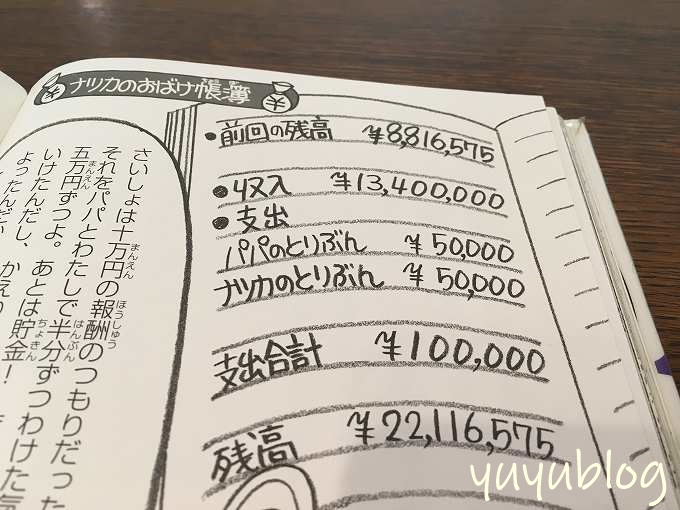 ナツカのおばけ帳簿
●前回の残高 ¥8,816,575
●収入 ¥13,400,000
●支出
パパのとりぶん ¥50,000
ナツカのとりぶん ¥50,000
支出合計 ¥100,000
残高 ¥22,116,575
さいしょは十万円の報酬のつもりだった
それをパパとわたしで半分ずつわけた気
五万円ずつよ。あとは貯金!
いけたんだし、かえり
よったんだ
yuyublog